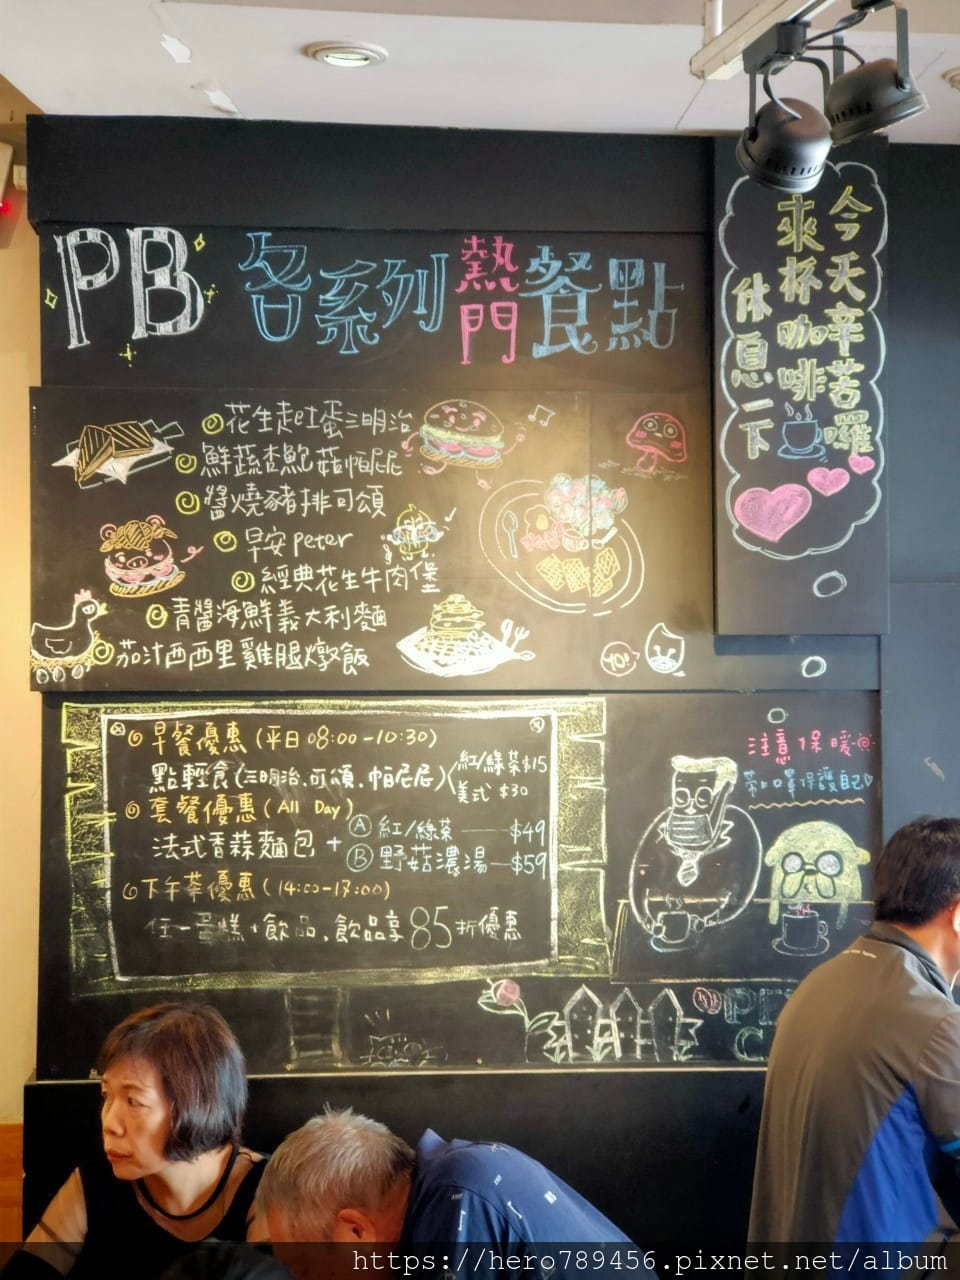 PB 各系列熱門餐點
今天辛苦囉
來杯咖啡
休息一下
花生起士蛋三明治
鮮蔬杏鮑菇帕尼尼
醬燒豬排可頌
早安peter
經典花生牛肉堡
青醬海鮮義大利麵
茄汁西西里雞腿燉飯
YO!
早餐優惠(平日08:00-10:30)
點輕食(三明治.可頌.帕尼尼)
紅/綠茶$15
美式 $30
套餐優惠(All Day)
法式香蒜麵包 +
A 紅/綠茶 — $49
B 野菇濃湯 — $59
下午茶優惠(14:00-17:00)
任一蛋糕+飲品.飲品享85折優惠
注意保暖
帶上口罩保護自己
https://hero789456.pixnet.net/album